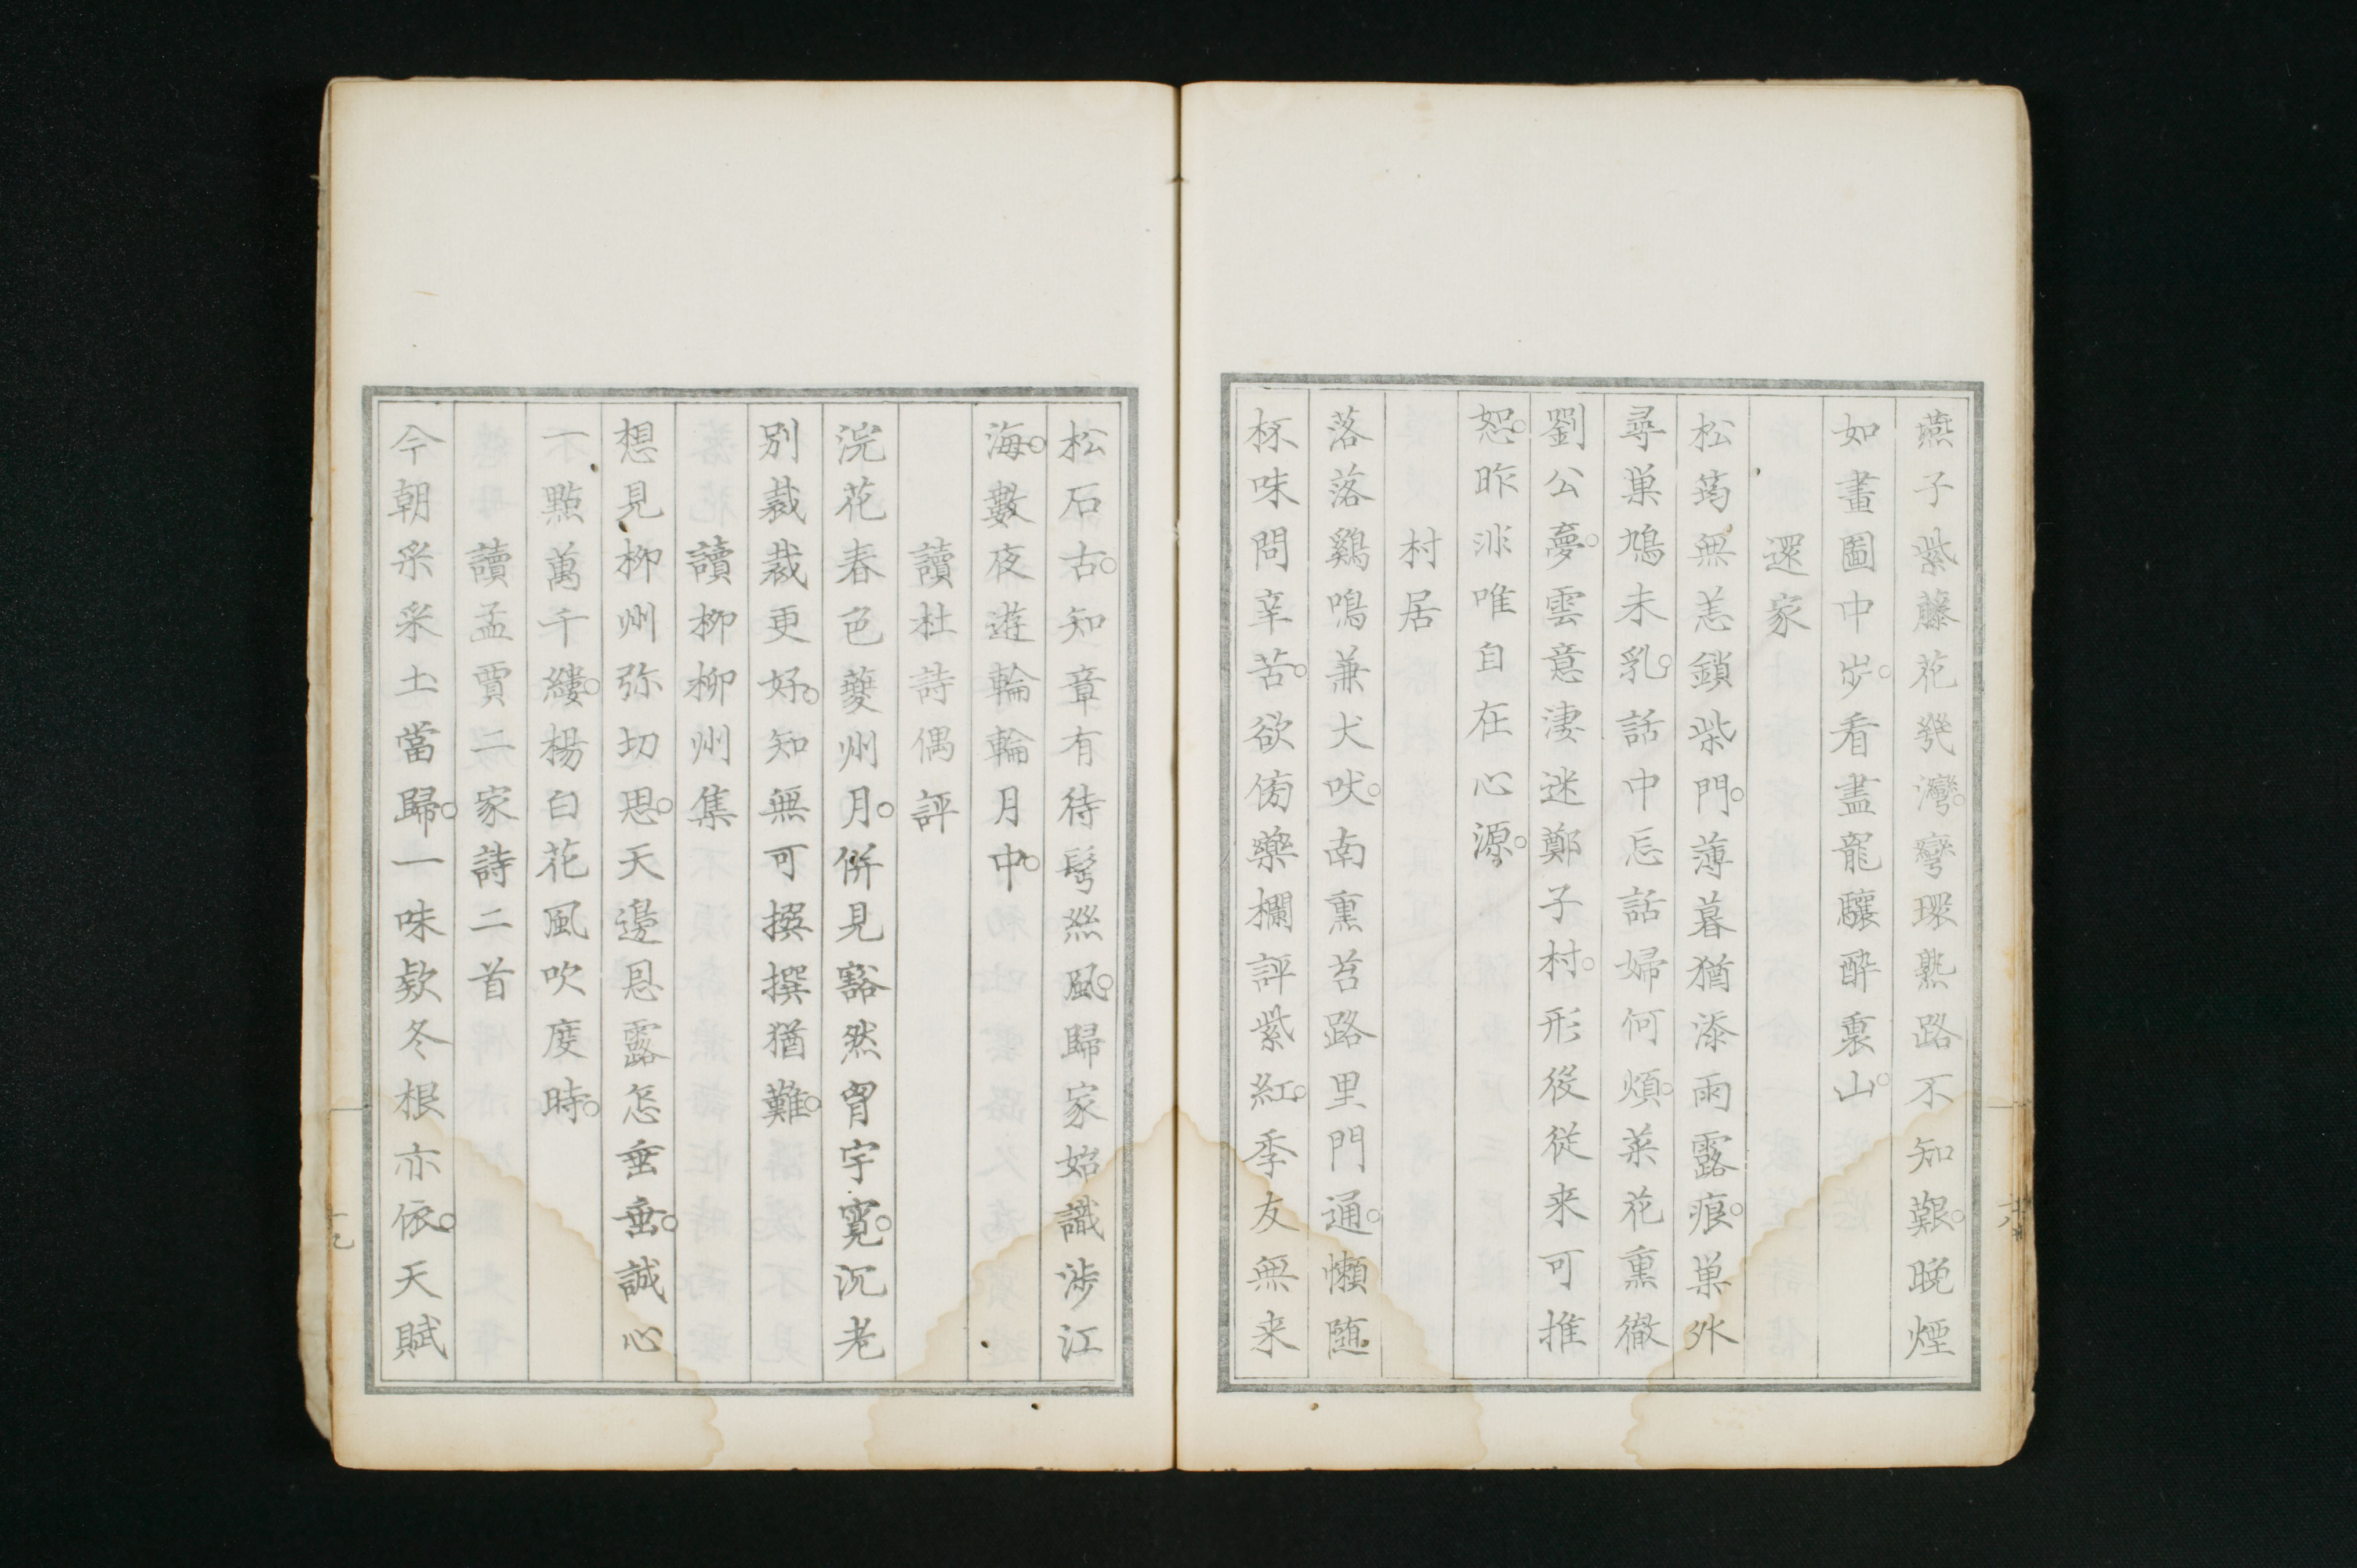 燕子紫藤花発灣。彎環熟路不知艱。晚煙
如畫圖中步。看盡龍驤酔裏山。
還家
松筠無恙鎖柴門。薄暮猶添雨露痕。巣外
尋巣鳩未乳。話中忘話婦何煩。菜花熏徹
劉公夢。雲意淒迷鄭子村。形役従来可推
恕。昨非唯自在心源。
村居
落落鷄鳴兼犬吠。南熏苔路里門通。懶随
杯味問辛苦。欲傍藥欄評紫紅。季友無来
松石古。知章有待髩絲風。歸家始識渉江
海。數夜遊輪輪月中。
讀杜詩偶評
浣花春色夔州月。併見豁然胷宇寛。沉老
別裁裁更好。知無可撰撰猶難。
讀柳柳州集
想見柳州弥切思。天邊恩露怎垂垂。誠心
一點萬千縷。楊白花風吹度時。
讀孟賈二家詩二首
今朝采采土當歸。一味欵冬根亦依。天賦
十八
十九